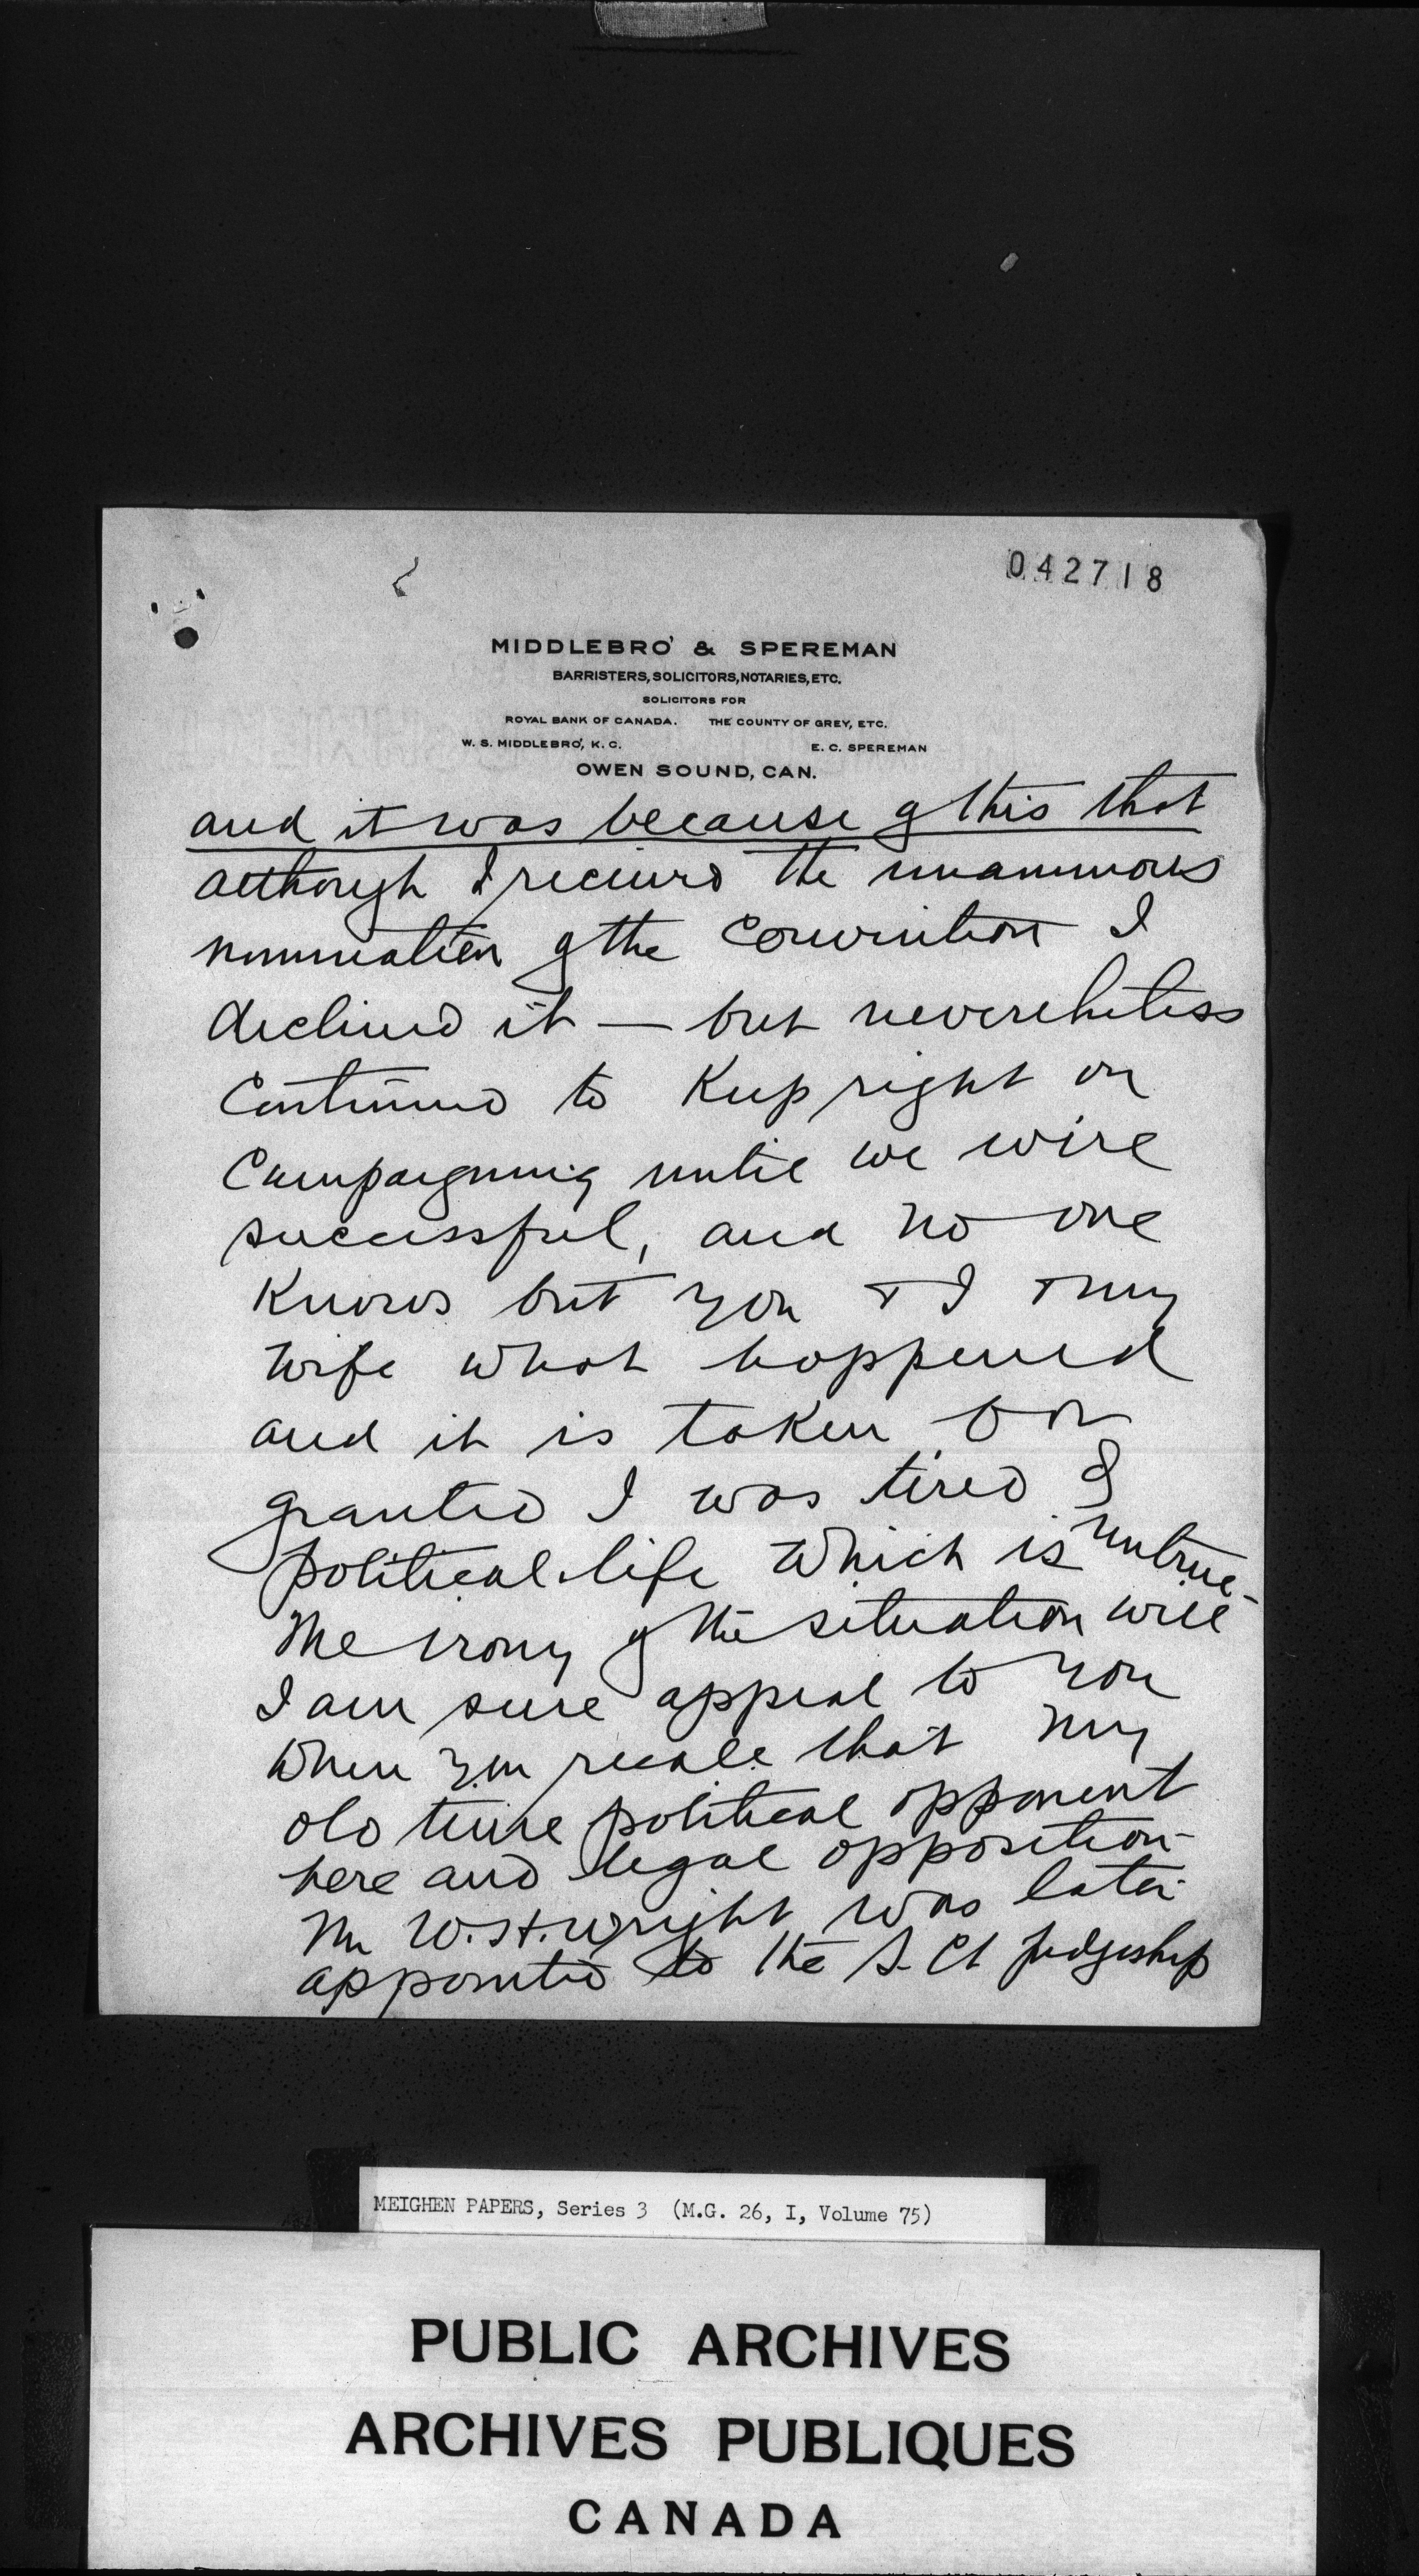 042718
MIDDLEBRO' & SPEREMAN
BARRISTERS, SOLICITORS, NOTARIES, ETC.
SOLICITORS FOR
ROYAL BANK OF CANADA. THE COUNTY OF GREY, ETC.
W. S. MIDDLEBRO', K. C. E. C. SPEREMAN
OWEN SOUND, CAN.
and it was because of this that
although I received the unanimous
nomination of the Convention I
declined it — but neverheless
Continued to Keep right on
Campaigning until we were
successful, and no one
Knows but you + I + my
wife what happened
and it is taken for
granted I was tired of
political life which is untrue -
The irony of the situation will
I am sure appeal to you
when you recall that my
old time political opponent
here and legal opposition
Mr W. H. Wright was later
appointed to the S. Ct judgeship
MEIGHEN PAPERS, Series 3 (M.G. 26, I, Volume 75)
PUBLIC ARCHIVES
ARCHIVES PUBLIQUES
CANADA